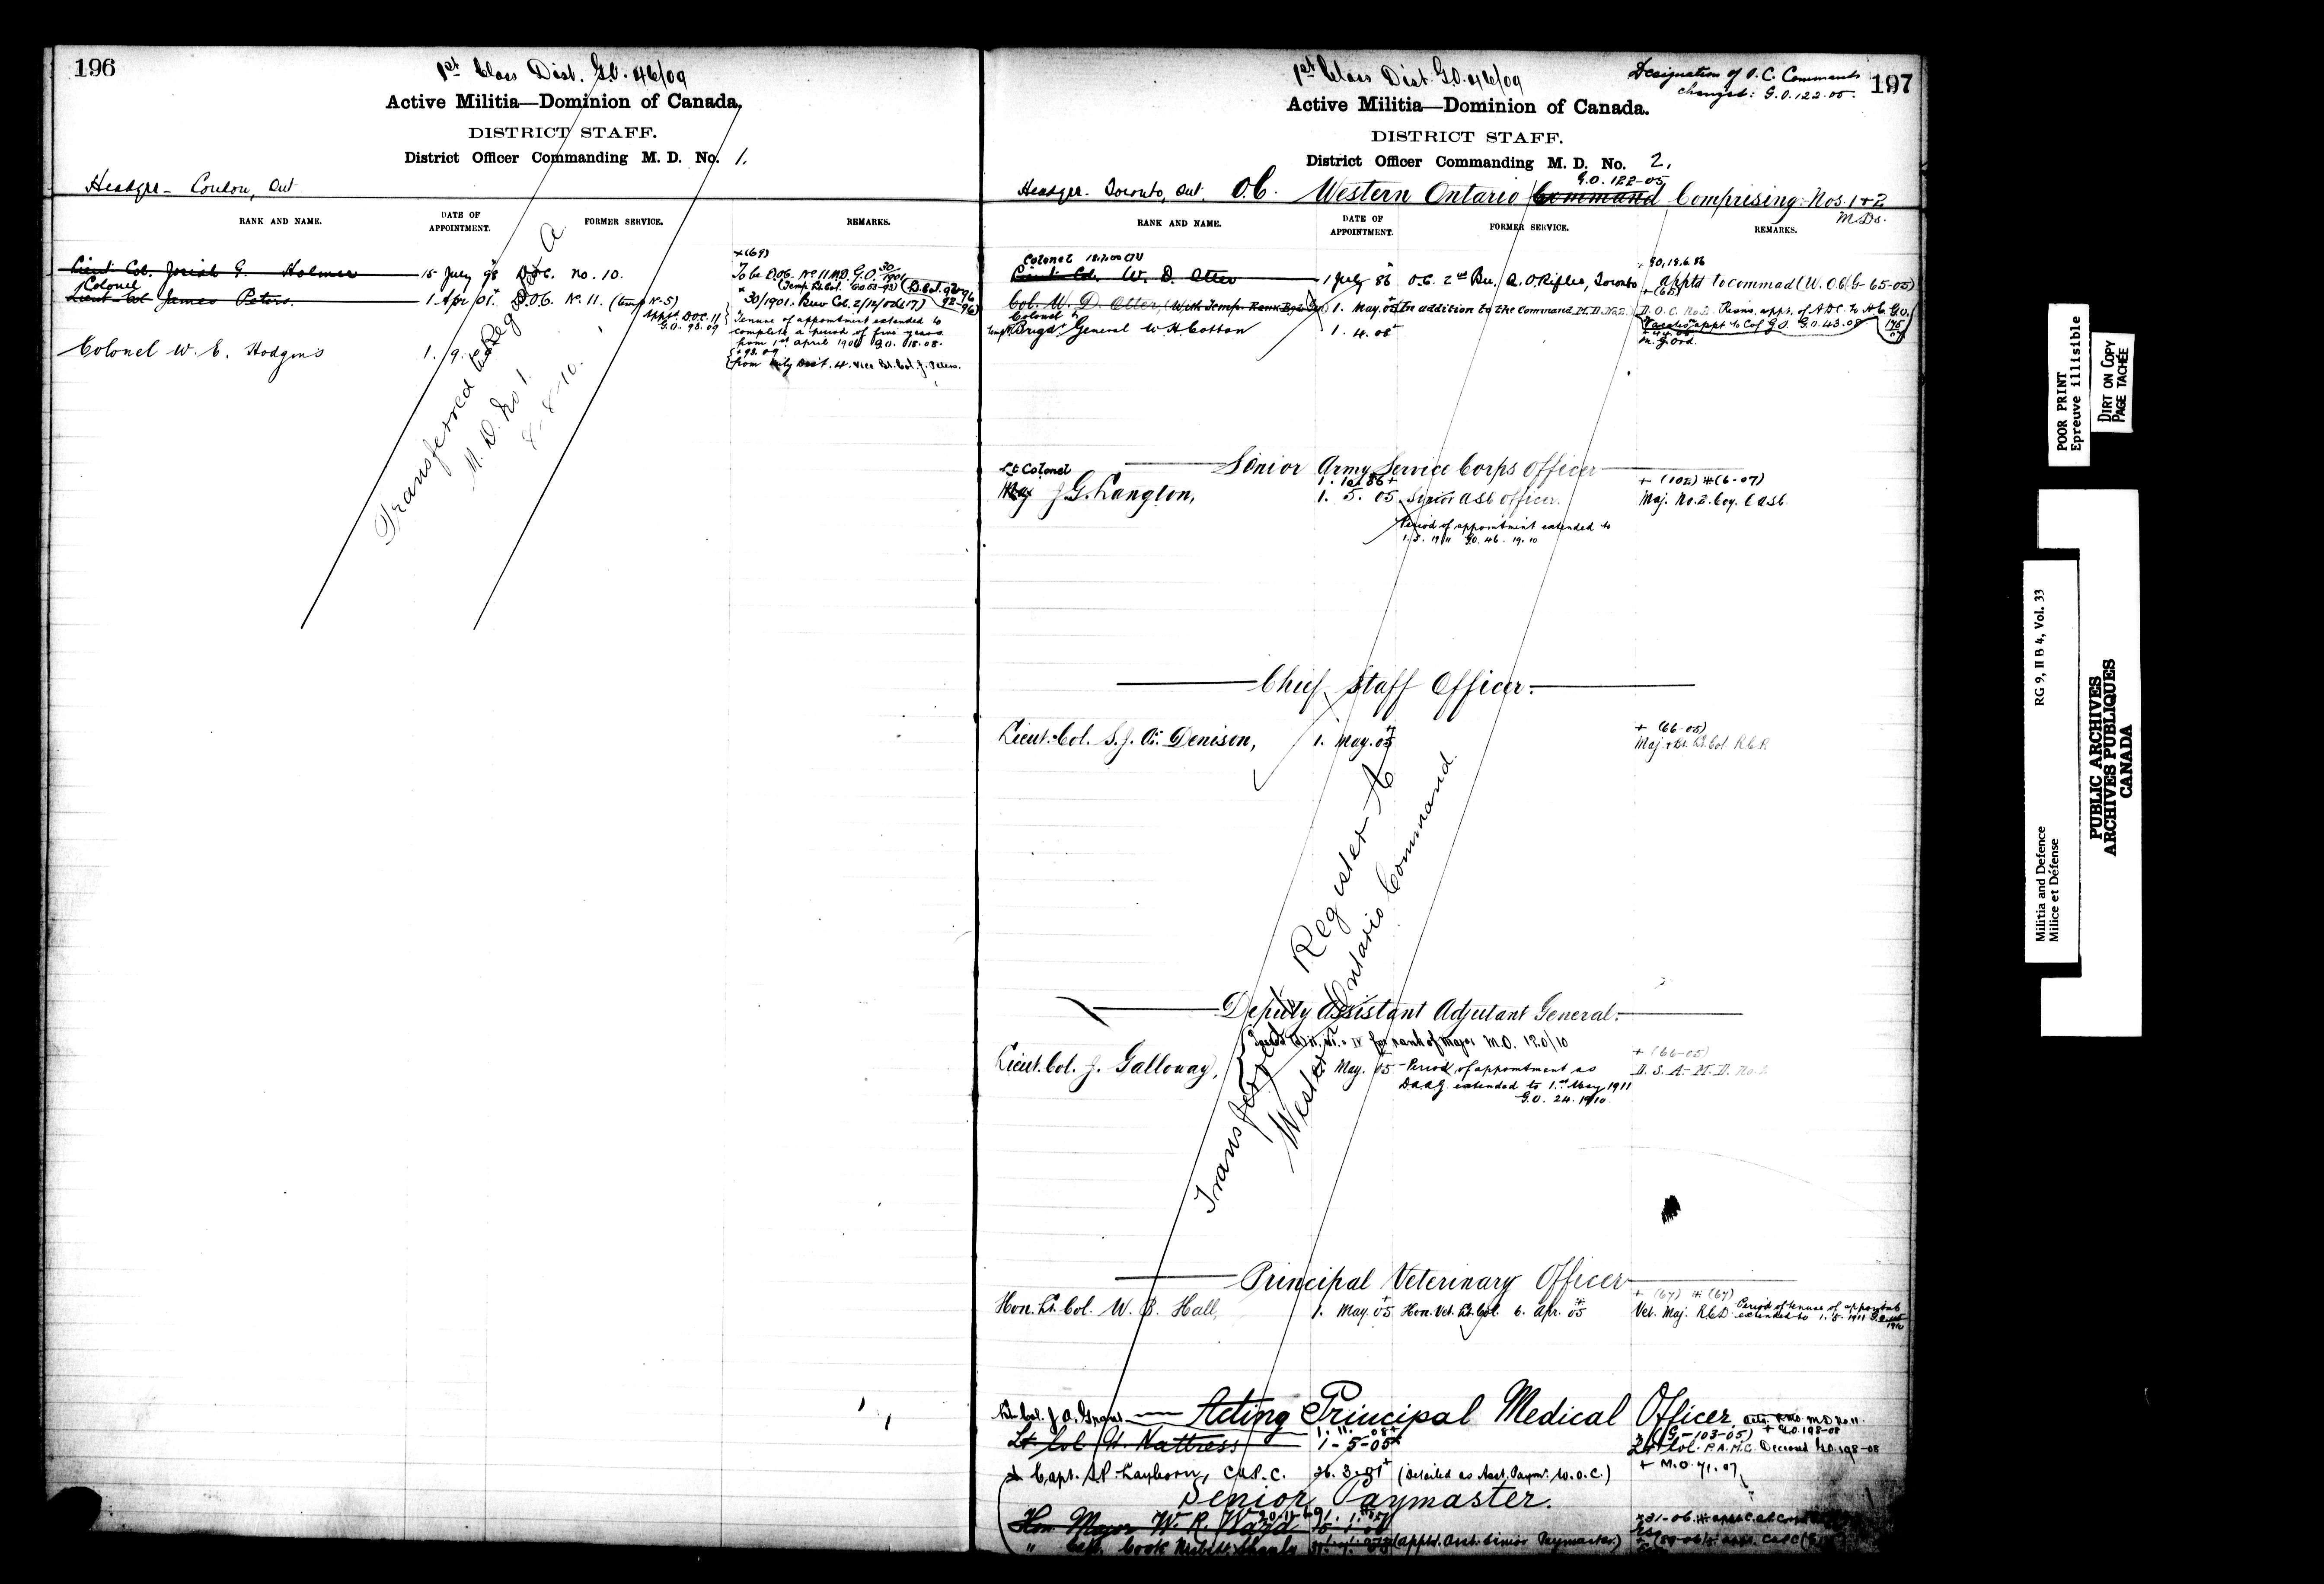 196
1st Class Dist. G.O. 46/09
Active Militia—Dominion of Canada,
DISTRICT STAFF.
District Officer Commanding M. D. No. 1.
Headqrs - London, Ont
RANK AND NAME.
DATE OF APPOINTMENT.
FORMER SERVICE.
REMARKS.
Lieut Col. Josiah G. Holmes 15 July 98 D.O.C. No. 10.
x (69)
To be D.O.C. No 11 M.D. G.O. 30/1901
Colonel
Lieut Col James Peters. 1 Apr 01. D.O.C. No. 11. (temp No 5)
Appt'd D.O.C. 11
G.O. 98. 09
Tenure of appointment extended to
complete a period of five years
from 1st April 1904 G.O. 18.08.
Colonel W. E. Hodgins 1. 9. 09
+ 98. 09
from Mily Dist. 4. vice Bt. Col. J. Peters.
Transferred to Reg. A
M. D. No 1.
8-8-10.
197
1st Class Dist. G.O. 46/09
Designation of O.C. Commands
changed: G.O. 122-05.
Active Militia—Dominion of Canada.
DISTRICT STAFF.
District Officer Commanding M. D. No. 2.
G.O. 122-05
Headqrs. Toronto, Ont. O.C. Western Ontario Command Comprising Nos. 1+2
M.Ds.
RANK AND NAME.
DATE OF APPOINTMENT.
FORMER SERVICE.
REMARKS.
Colonel
Lieut Col. W. D. Otter 1 July 86 O.C. 2nd Bn. Q. O. Rifles, Toronto
appt'd to command (W.O.C. G-65-05)
Col. W. D. Otter, (With Temp. Rank Brig Gen) 1. May. 05 In addition to the Command M.D. No 2.
D.O.C. No 2. Retains appt. of A.D.C. to H.E. G.O.
Colonel &
temp Brigdr. General W. H. Cotton 1. 4. 08
G.O. 43. 08
M. G. Ord.
Senior Army Service Corps Officer
Lt Colonel
Maj J. G. Langton,
1. 5. 05 Senior A.S.C. Officer.
+ (102) # (6-07)
Maj. No. 2. Coy. C.A.S.C.
Period of appointment extended to
1. 5. 1911 G.O. 46. 1910
Chief Staff Officer.
Lieut. Col. S. J. A. Denison, 1. May. 05
+ (66-05)
Maj. & Bt. Lt. Col. R.C.R.
Deputy Assistant Adjutant General.
for rank of Major M.O. 120/10
Lieut. Col. J. Galloway, May. 05 Period of appointment as
D.A.A.G. extended to 1st May 1911
G.O. 24. 1910
+ (66-05)
D. S. A. M. D. No 2
Transferred to Register A
Western Ontario Command.
Principal Veterinary Officer
Hon. Lt. Col. W. B. Hall, 1. May. 05 Hon. Vet. Lt. Col. 6. Apr. 05
+ (67) # (67)
Vet. Maj. R.C.D. Period of tenure of appointmt
extended to 1. 5. 1911
Acting Principal Medical Officer
Lt. Col. J. A. Grant 1. 11. 08
M.D. No 11.
+ G.O. 198-08
Lt Col W. Nattress 1-5-05
(G-103-05)
Lt Col. P.A.M.C. Deceased G.O. 198-08
Capt. Layborn, C.A.P.C. 26. 3. 07 (Detailed as Asst. Paymr. W.O.C.)
+ M.O. 71. 07
Senior Paymaster.
Hon. Major W. R. Ward
" (apptd. Asst. Senior Paymaster)
POOR PRINT
Epreuve illisible
DIRT ON COPY
PAGE TACHÉE
Militia and Defence
Milice et Défense
RG 9, II B 4, Vol. 33
PUBLIC ARCHIVES
ARCHIVES PUBLIQUES
CANADA